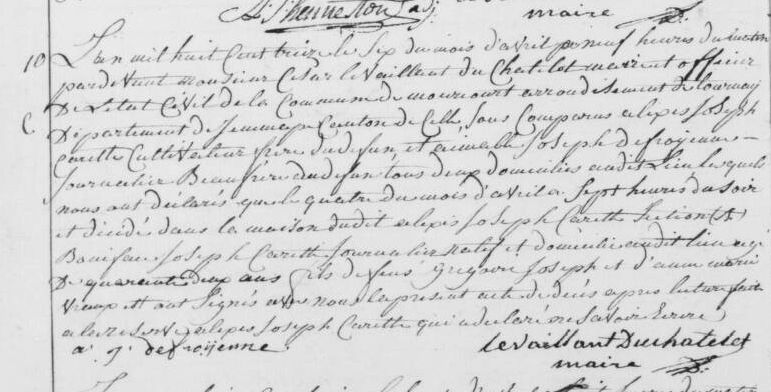 maire
10 L'an mil huit cent treize le six du mois d'avril a neuf heures du matin
pardevant monsieur Cesar le vaillant du Chatelet maire et officier
De L'etat Civil de la Commune de mourcourt arrondisement de tournay
C Département de Jemmape Canton de Celle Sont Comparus alexis Joseph
Carette Cultivateur frere du defunt et aimable Joseph Defroyenne
Journalier Beaufrere du defunt tous deux domiciliés audit Lieu lesquels
nous ont déclarés que le quatre du mois d'avril a Sept heures du Soir
et décédé dans la maison dudit alexis Joseph Carette Section A
Boniface Joseph Carette Journalier natif et domicilié audit lieu agé
De quarante deux ans fils de feus Gregoire Joseph et d'anne marie
et ont Signés avec nous le present acte de décès apres lecture fait
a la reserve alexis Joseph Carette qui a declaré ne Savoir Ecrire
a. j. defroyenne levaillant Duchatelet
maire